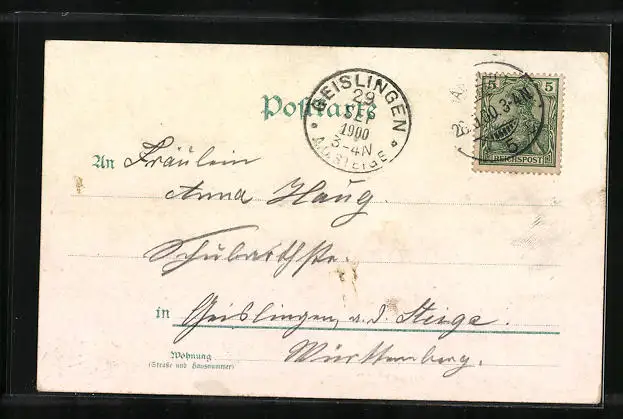 Postkarte
GEISLINGEN
29
SEP
1900
3-4N
A.D.STEIGE
3-4N
5 5
REICHSPOST
An Fräulein
Anna Haug.
Schubarthstr.
in Geislingen, a. d. Steige.
Württemberg.
Wohnung
(Straße und Hausnummer)